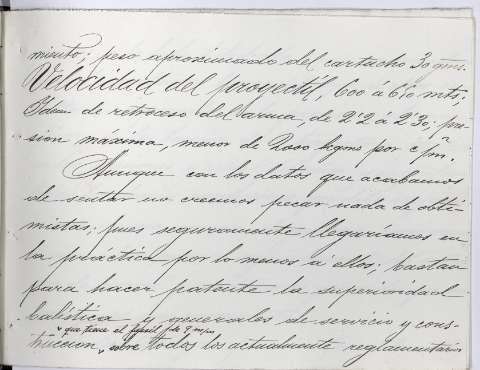 miento; peso aproximado del cartucho 30 gms.
Velocidad del proyectil, 600 á 610 mts;
Idem de retroceso del arma, de 2'2 á 2'30; pre-
sion máxima, menor de 2000 kgms por c/m.
Aunque con los datos que acabamos
de sentar no creemos pecar nada de obti-
mistas; pues seguramente llegaríamos en
la práctica por lo menos á ellos; bastan
para hacer patente la superioridad
balística y generales de servicio y cons-
que tiene el fusil de 7 m/m
truccion sobre todos los actualmente reglamentarios